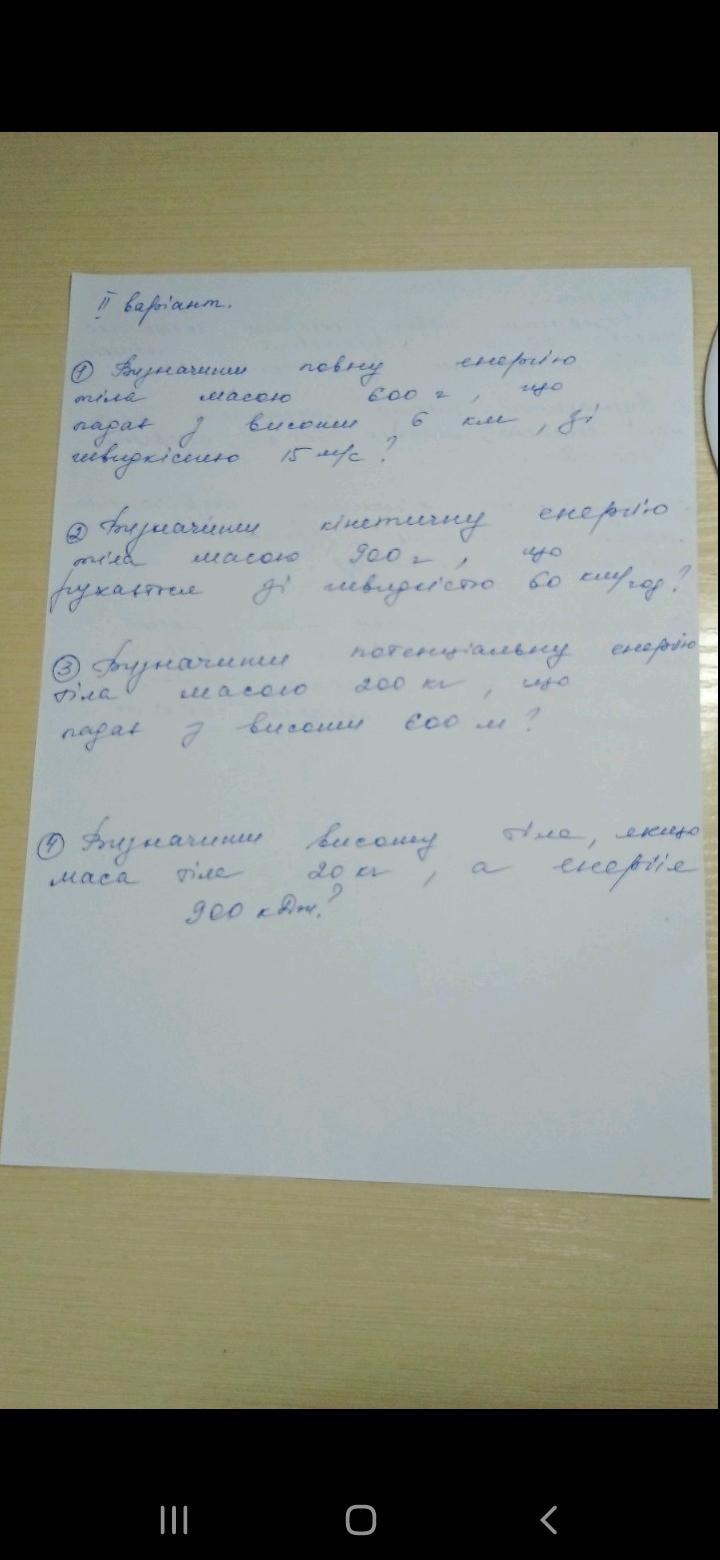 II варіант.
① Визначити повну енергію
тіла масою 600 г, що
падає з висоти 6 км, зі
швидкістю 15 м/с?
② Визначити кінетичну енергію
тіла масою 900 г, що
рухається зі швидкістю 60 км/год?
③ Визначити потенціальну енергію
тіла масою 200 кг, що
падає з висоти 600 м?
④ Визначити висоту тіла, якщо
маса тіла 20 кг, а енергія
900 кДж.?